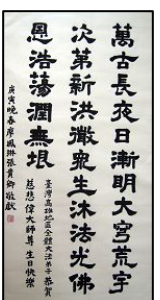 萬古長夜日漸明大穹荒宇
次第新洪微眾生沐法光佛
恩浩蕩潤無垠
臺灣高雄地區全體大法弟子 恭賀
慈悲偉大師尊 生日快樂
庚寅晚春廖鳳琳張貴卿敬獻